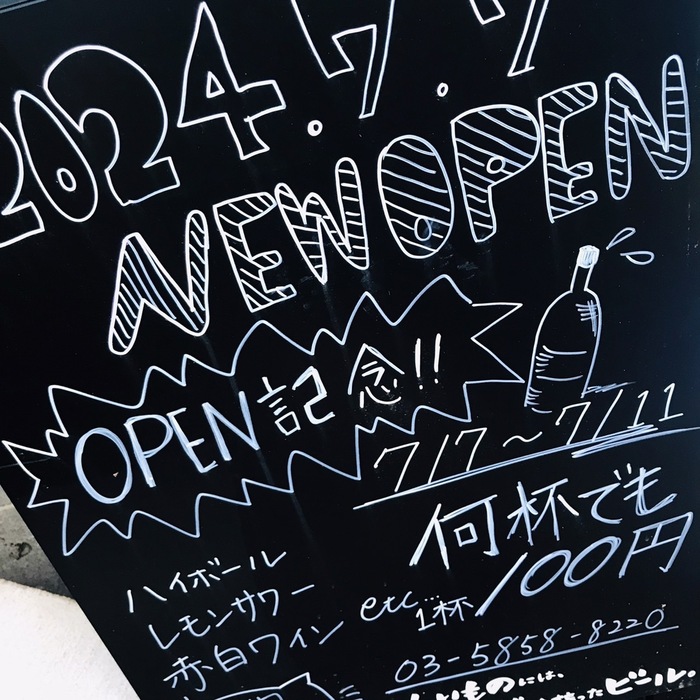 2024.7.7
NEW OPEN
OPEN記念!!
7/7~7/11
何杯でも
ハイボール
レモンサワー
赤白ワイン etc...
1杯100円
03-5858-8220
ものには、
ビール。